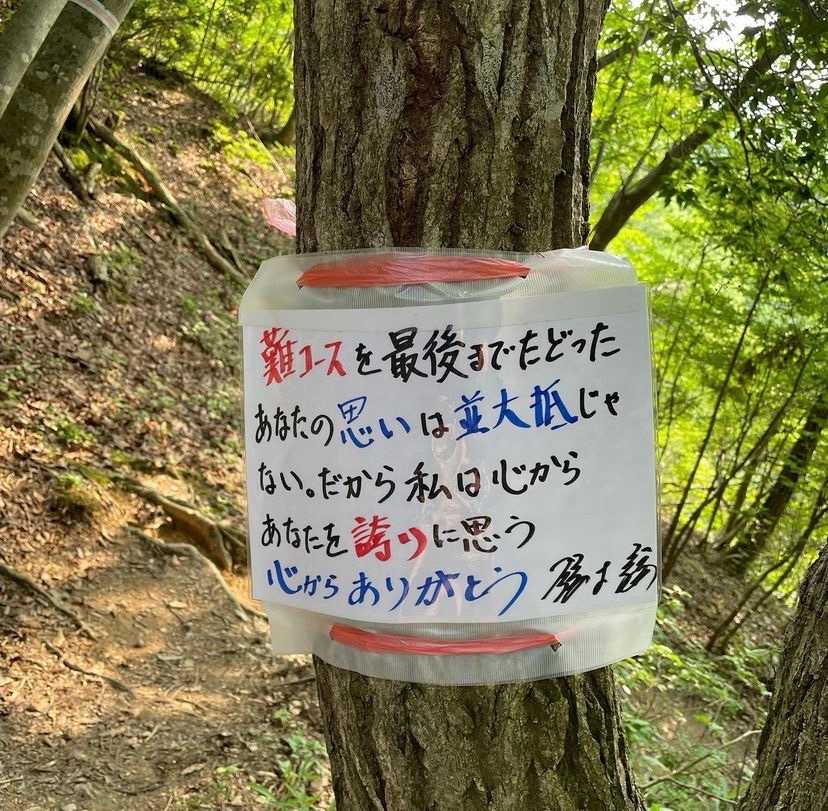 難コースを最後までたどった
あなたの思いは並大抵じゃ
ない。だから私は心から
あなたを誇りに思う
心からありがとう